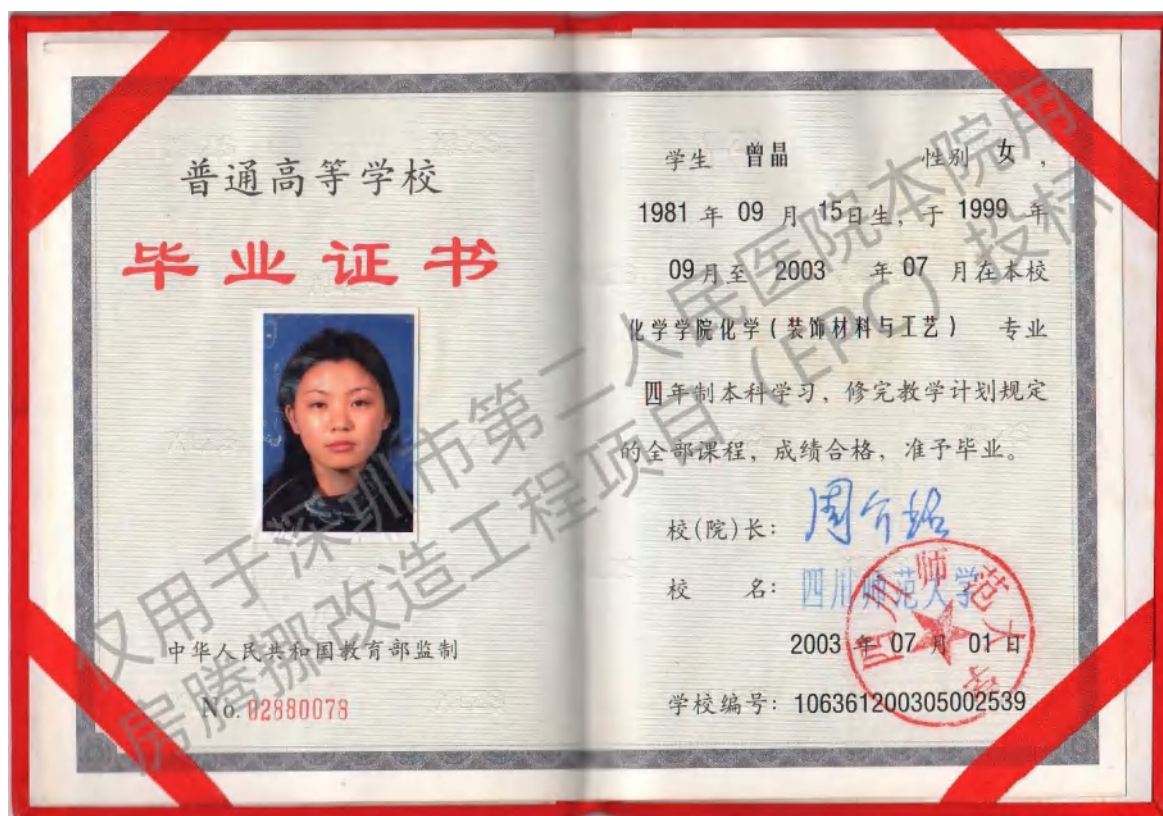 普通高等学校
毕业证书
中华人民共和国教育部监制
No.02880078
学生 曾晶 性别 女，
1981 年 09 月 15日生，于 1999 年
09月至 2003 年 07 月在本校
化学学院化学(装饰材料与工艺) 专业
四年制本科学习，修完教学计划规定
的全部课程，成绩合格，准予毕业。
校(院)长：周介铭
校 名：四川师范大学
2003 年 07 月 01 日
学校编号：106361200305002539
四川师范大学
仅用于深圳市第二人民医院本院用
房腾挪改造工程项目（EPC）投标